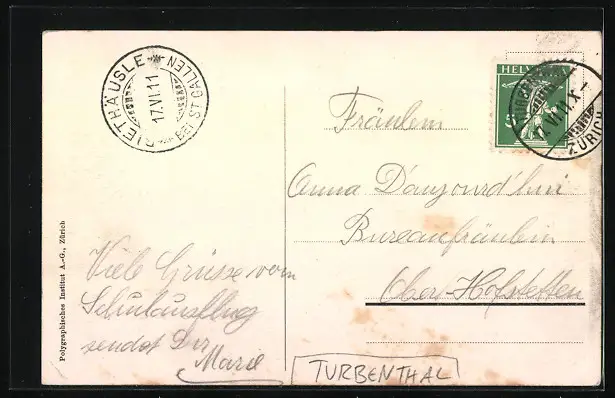 RIETHÄUSLE
BEI ST. GALLEN
17.VI.11
HELVETIA
5
17.VI.11.X-
ZÜRICH
Fräulein
Anna D'aujourd'hui
Bureaufräulein
Ober-Hofstetten
TURBENTHAL
Viele Grüsse vom
Schulausflug
sendet Dir
Marie
Polygraphisches Institut A.-G., Zürich